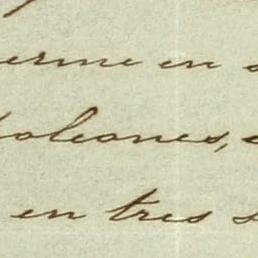 erme en
poleones,
en tres